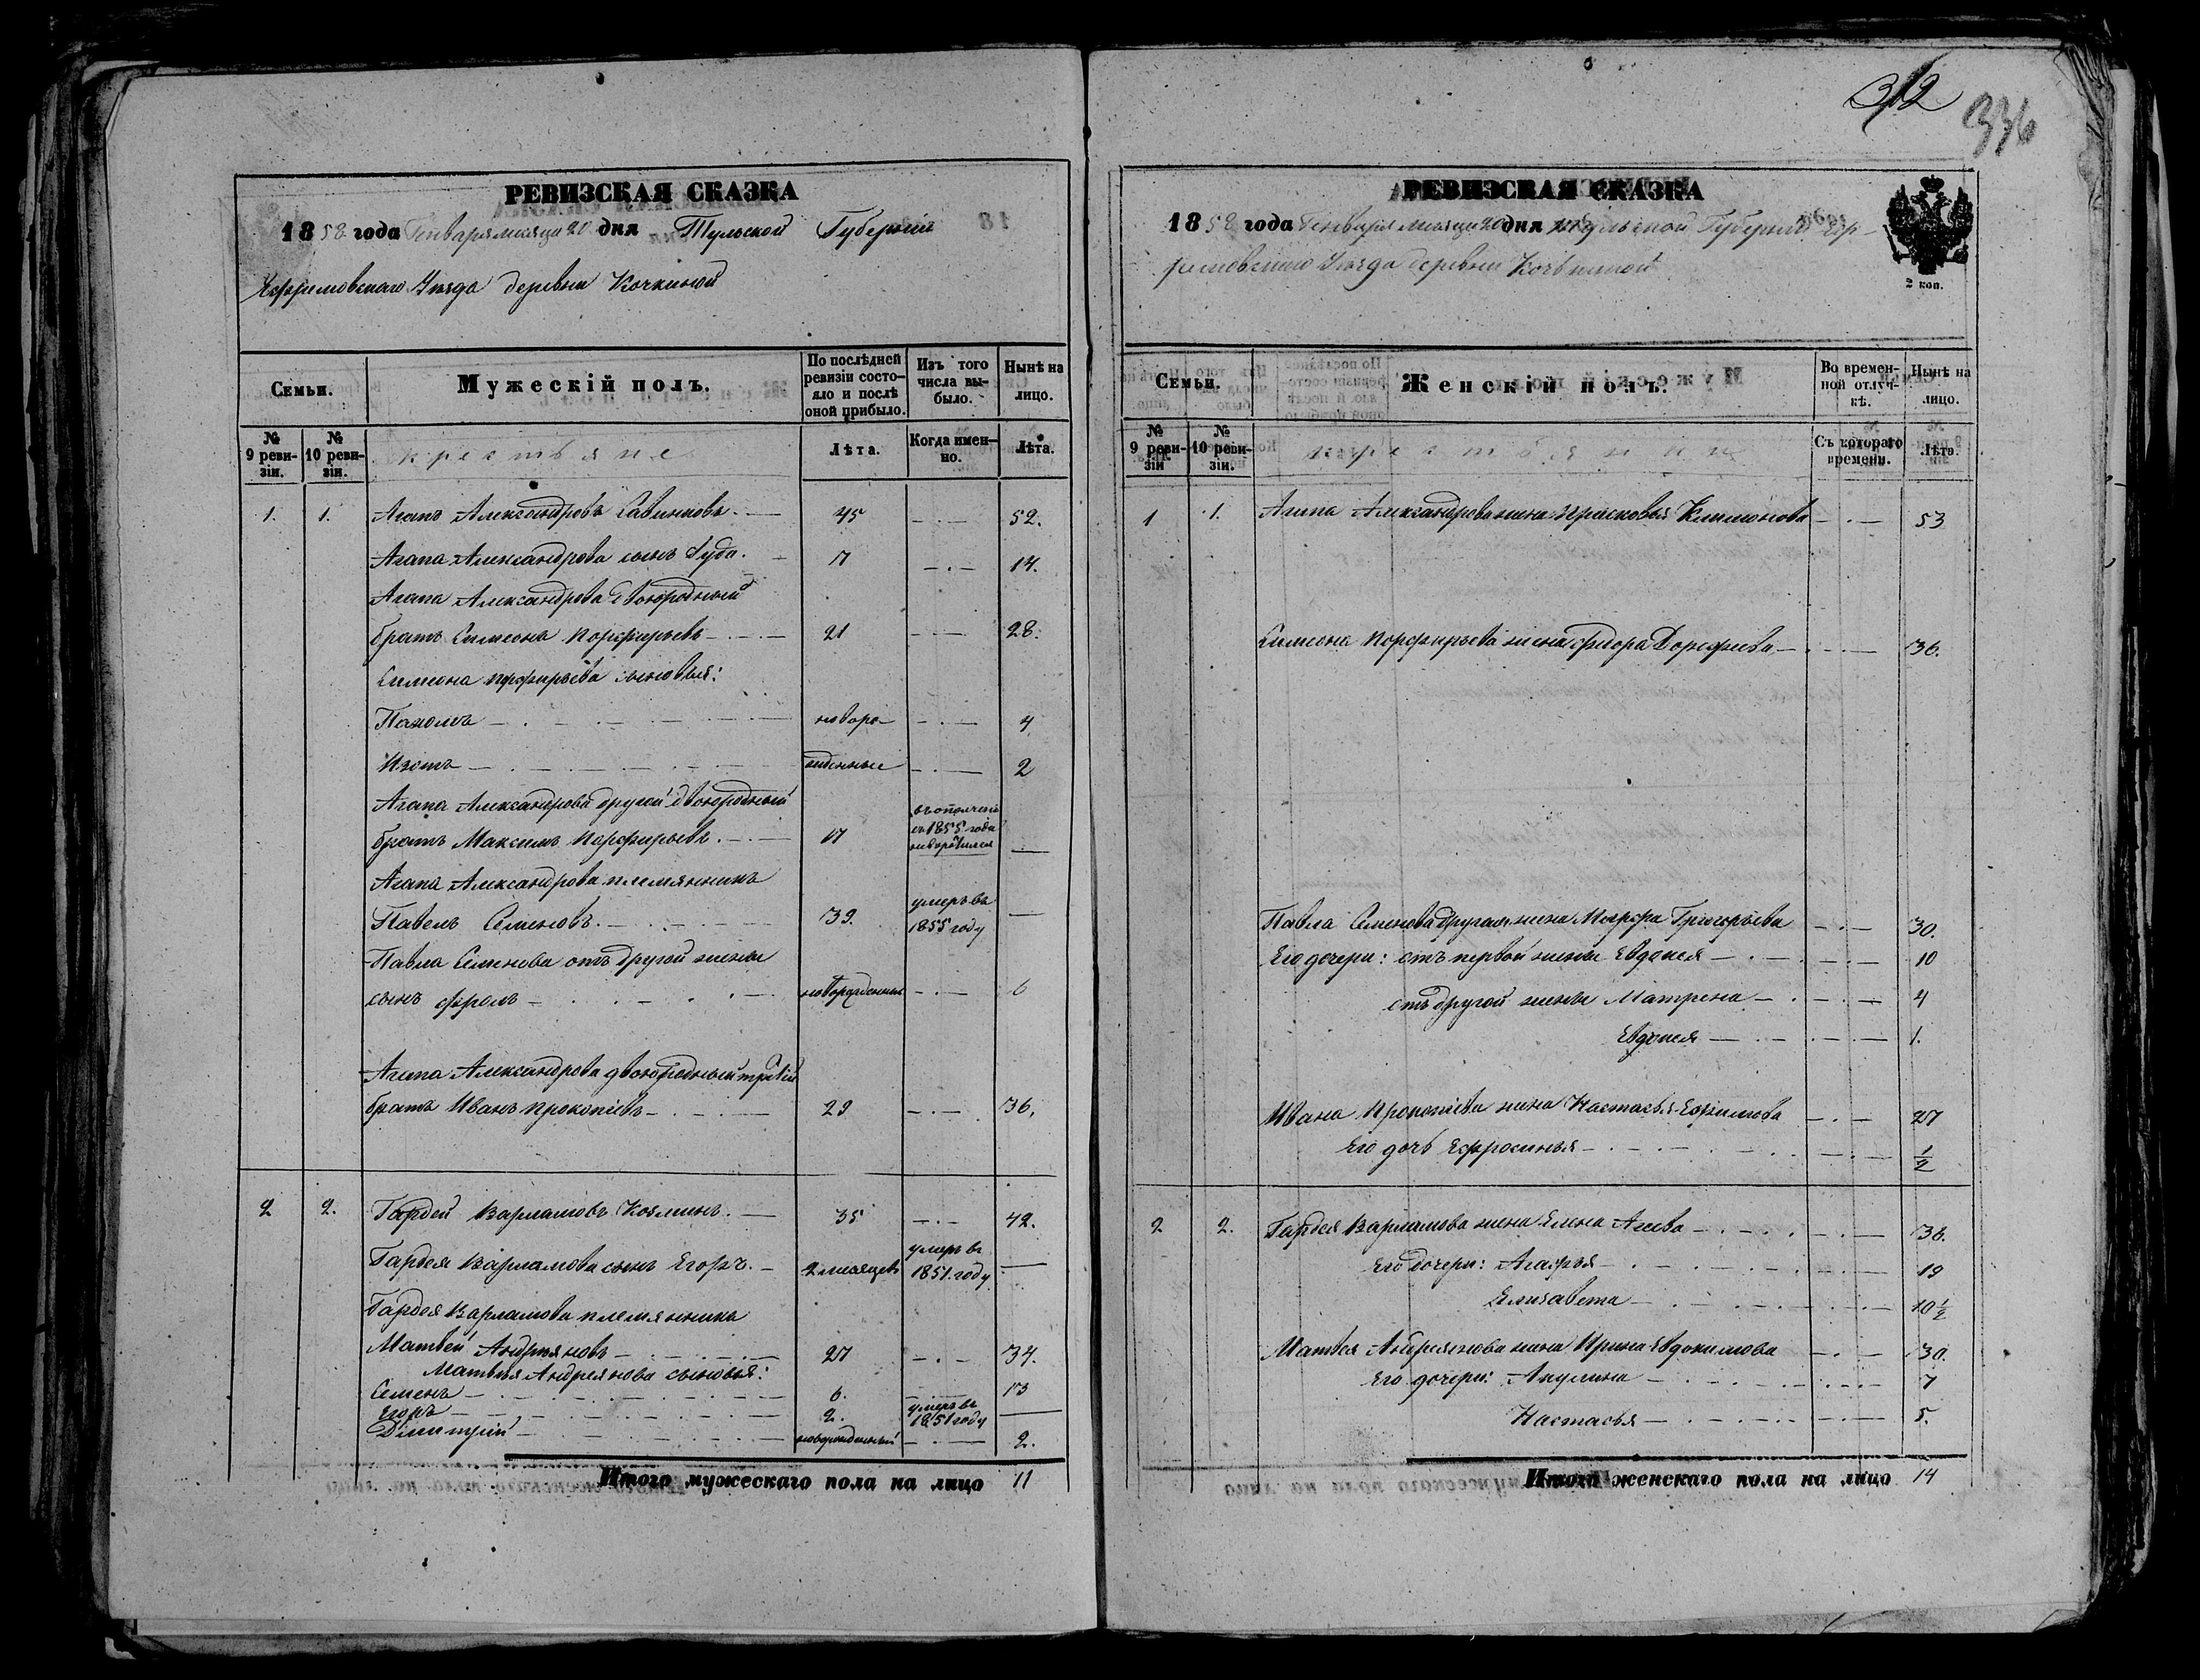 312
336
РЕВИЗСКАЯ СКАЗКА
1858 года Генваря месяца 20 дня Тульской Губернiи
Ефремовскаго Уезда деревни Кочкиной
Семьи.
Мужескiй полъ.
По послѣдней ревизiи состояло и послѣ оной прибыло.
Изъ того числа выбыло.
Нынѣ на лицо.
№ 9 ревизiи.
№ 10 ревизiи.
крестьяне
Лѣта.
Когда именно.
Лѣта.
1. 1. Агапъ Александровъ Савинковъ. 45 52.
Агапа Александрова сынъ Гуда. 7 14.
Агапа Александрова двоюродный
братъ Симеонъ Порфирьевъ 21 28.
Симеона Порфирьева сыновья:
Пахомъ новоро- 4
Изотъ жденные 2
Агапа Александрова другой двоюродный
братъ Максимъ Порфирьевъ. 17 въ ополченiе съ 1855 года
Агапа Александрова племянникъ
Павелъ Семеновъ. 39. умеръ въ 1855 году
Павла Семенова отъ другой жены
сынъ Фролъ новорожденный 6
Агапа Александрова двоюродный третiй
братъ Иванъ Прокопiевъ 29 36.
2 2. Гордей Варламовъ Козминъ. 35 42.
Гордея Варламова сынъ Егоръ. 2 месяцевъ умеръ въ 1851 году
Гордея Варламова племянникъ
Матвей Андрияновъ 27 34.
Матвея Андреянова сыновья:
Семенъ 6. 13
Егоръ 2. умеръ въ 1851 году
Дмитрiй новорожденный 2.
Итого мужескаго пола на лицо 11
РЕВИЗСКАЯ СКАЗКА
1858 года Генваря месяца 20 дня Тульской Губернiи Еф-
ремовскаго Уезда деревни Кочкиной
2 коп.
Семьи.
Женскiй полъ.
Во временной отлучкѣ.
Нынѣ на лицо.
№ 9 ревизiи
№ 10 ревизiи.
Съ котораго времени.
Лѣта.
1 1. Агапа Александрова жена Прасковья Климонова 53
Симеона Порфирьева жена Феодора Дорофеева 36.
Павла Семенова другая жена Марфа Григорьева 30.
Его дочери: отъ первой жены Евдокея 10
отъ другой жены Матрена 4
Евдокея 1.
Ивана Прокопiева жена Настасья Ефимова 27
Его дочь Ефросинья ½
2 2. Гордея Варламова жена Елена Агеева 36.
Его дочери: Агафья 19
Елизавета 10½
Матвея Андреянова жена Ирина Евдокимова 30.
Его дочери: Акулина 7
Настасья 5.
Итого женскаго пола на лицо 14